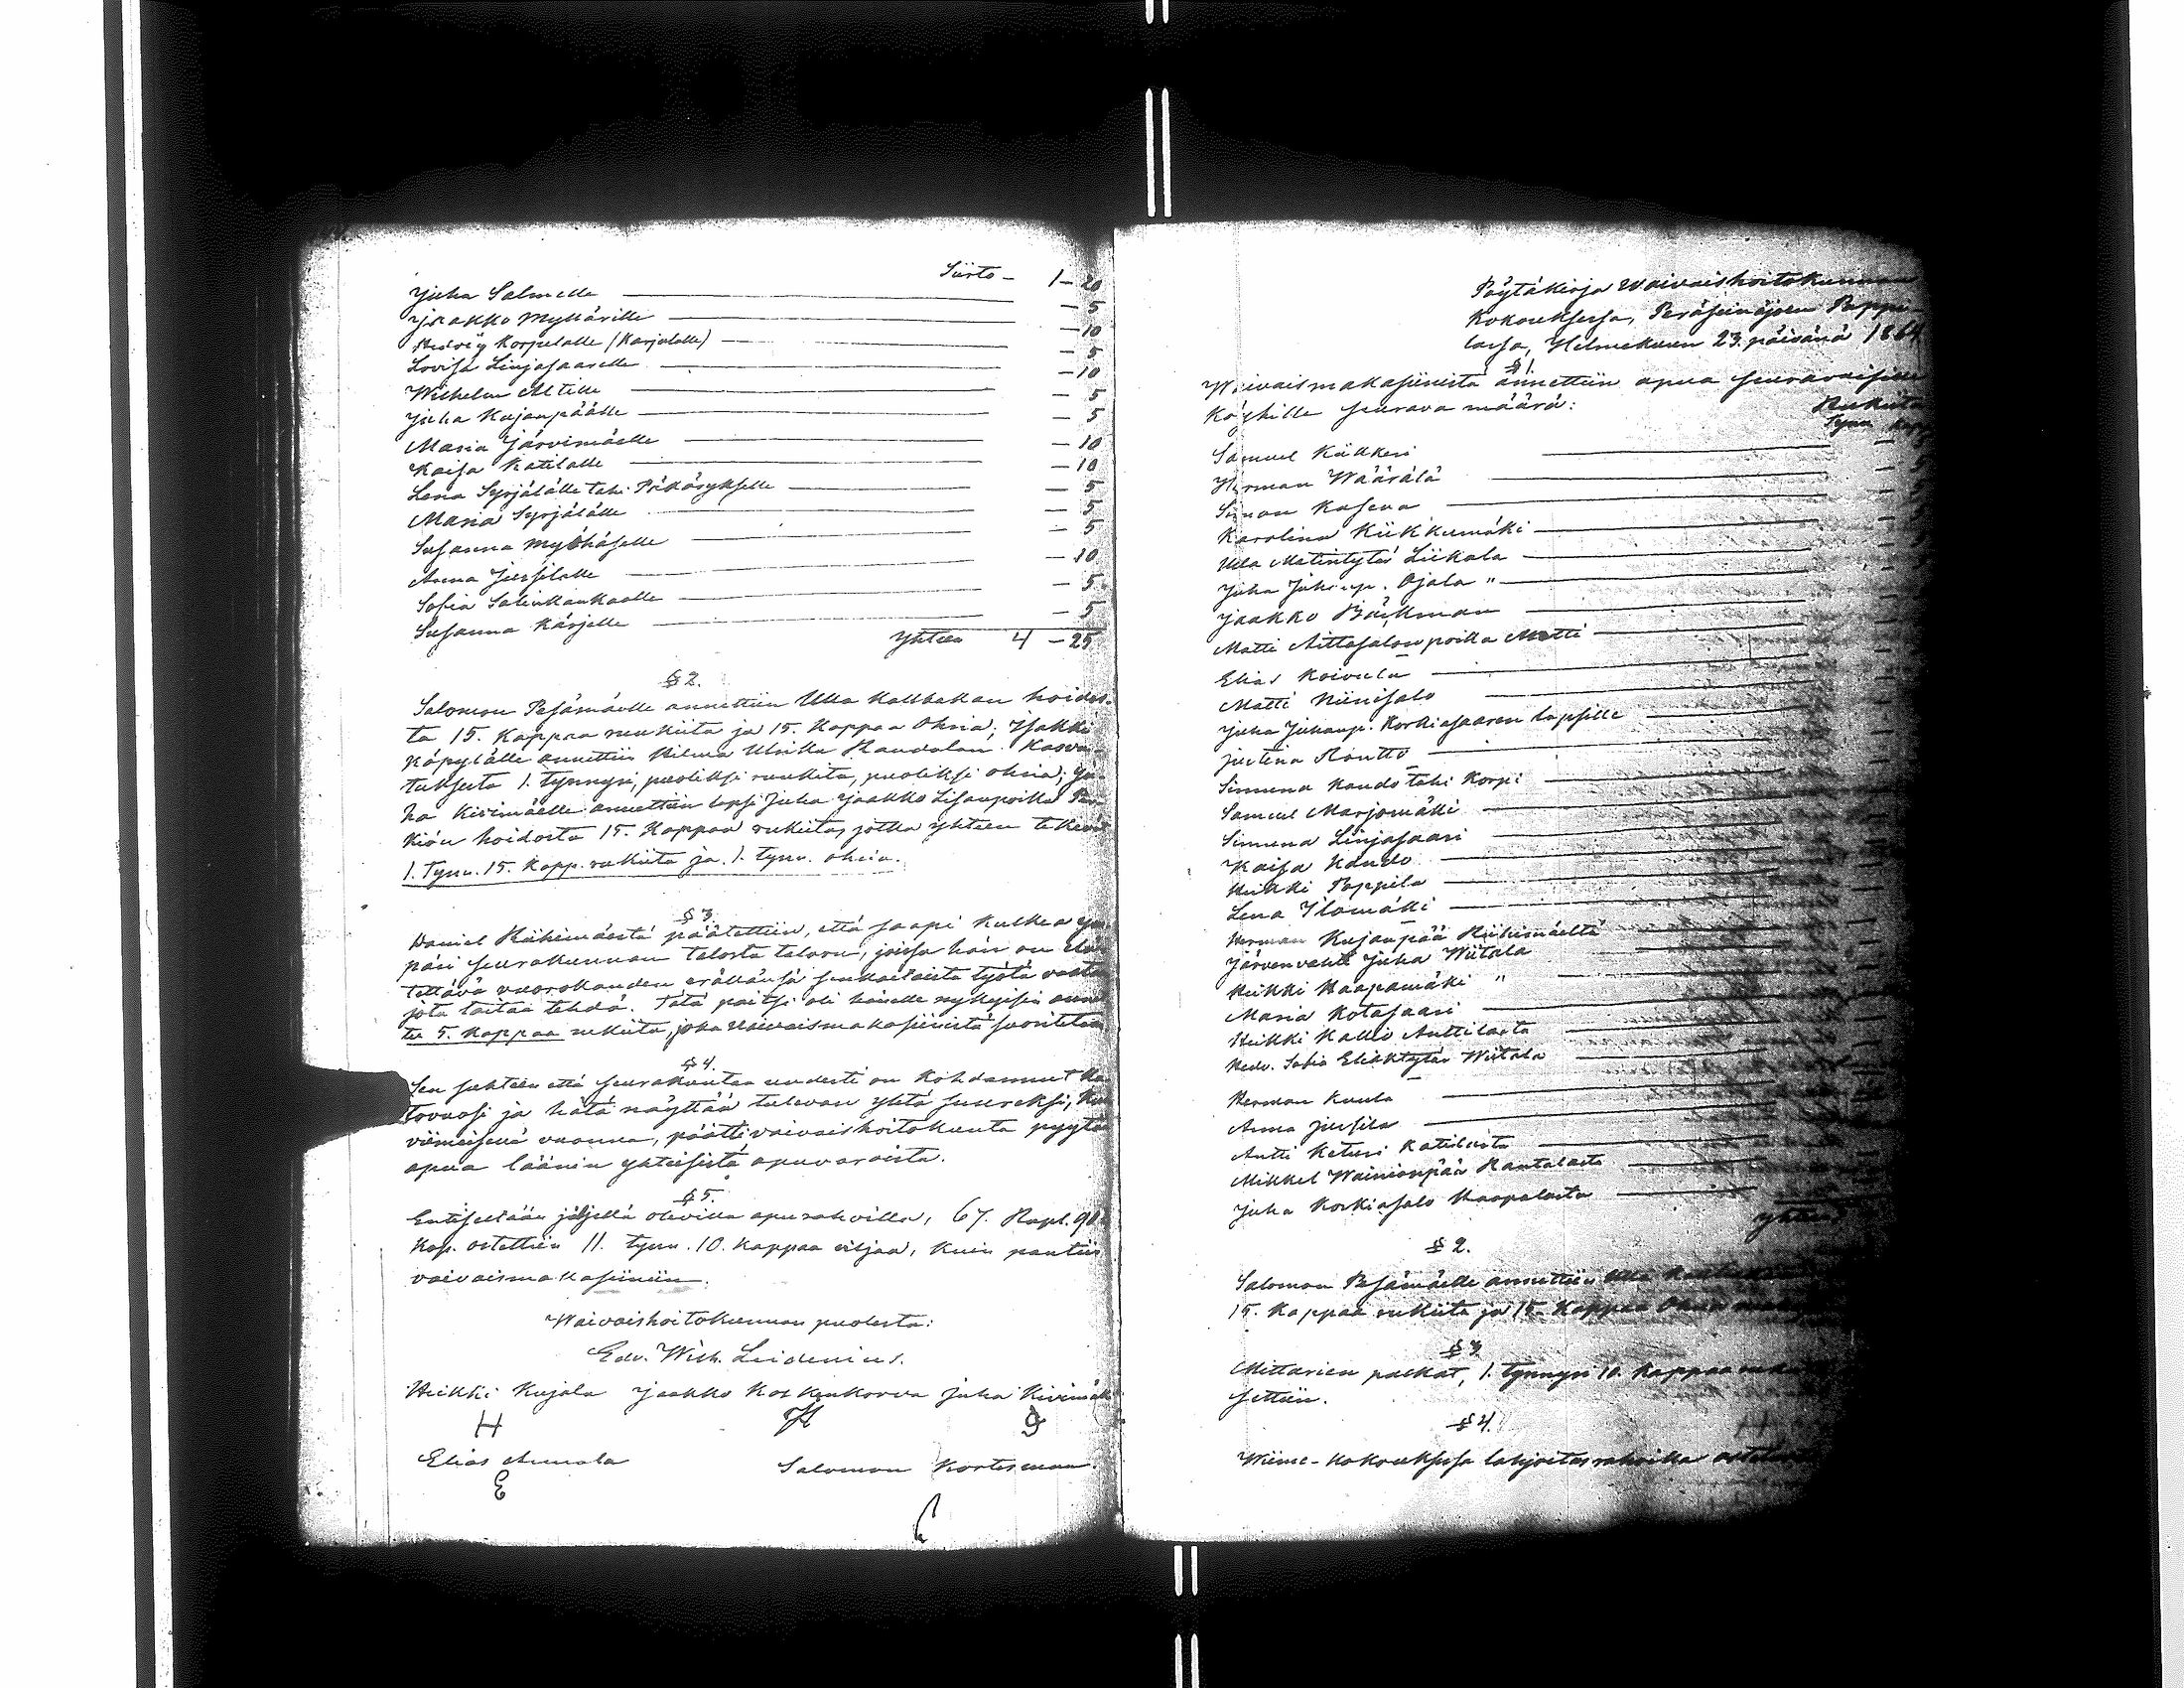 Siirto - 1 - 20
Juha Salmelle - 5
Jaakko Myllärille - 10
Hedvig Korpelalle (Karjulalle) - 5
Lovisa Linjasaarelle - 10
Wilhelm Mtille - 5
Juha Kujanpäälle - 5
Maria Järvimäelle - 10
Kaisa Katilalle - 10
Lena Syrjälälle tahi Pikärykselle - 5
Maria Syrjälälle - 5
Susanna Myöhäselle - 5
Anna Jussilalle - 10
Sofia Salinkankaalle - 5
Susanna Kärjelle - 5
Yhteen 4 - 25
§ 2.
Salomon Pesämäelle annettiin Ulla Kallbakan hoidos-
ta 15. Kappaa rukiita ja 15. Kappaa Ohria; Jsakki
Käpylälle annettiin Hilma Ulrika Hauvalan Kasva-
tuksesta 1. tynnyri, puoliksi rukiita, puoliksi ohria; Ju-
ha Kivimäelle annettiin lapsi Juha Jaakko Lisanpoika
kiön hoidosta 15. Kappaa rukiita, jotka yhteen tekevät
1. Tynn. 15. Kapp. rukiita ja 1. tynn. ohria.
§ 3.
Daniel Riihimäestä päätettiin, että saapi kulkea ym-
päri seurakunnan talosta taloon, joissa hän on ela-
tettävä vuorokauden erällänsä senkaltaista työtä vasta
jota taitaa tehdä. Tätä paitsi oli hänelle nykyisin annet-
tu 5. Kappaa rukiita, joka vaivaismakasiinista suoritetaan
§ 4.
Sen suhteen että seurakuntaa uudesti on kohdannut ka-
tovuosi ja hätä näyttää tulevan yhtä suureksi, kuin
viimeisenä vuonna, päätti vaivaishoitokunta pyytä
apua läänin yhteisistä apuvaroista.
§ 5.
Entiseltään jäljellä olevilla apurahoilla, 67. Rupl. 90.
Kop. ostettiin 11. tynn. 10. kappaa viljaa, kuin pantiin
vaivaismakasiiniin.
Waivaishoitokunnan puolesta:
Edv. Wilh. Leidenius.
Heikki Kujala Jaakko Koskenkorva Juha Kivimäki
H
Elias Annala Salomon Kortesmaa.
E
Pöytäkirja Waivaishoitokunnan
Kokouksessa, Peräseinäjoen Pappi-
lassa, Helmekuun 23. päivänä 1864
§ 1.
Waivaismakasiinista annettiin apua seuraavaisille
Köyhille seurava määrä:
Rukiita
Tynn Kapp
Samuel Källkeri
Herman Wäärälä
Simon Kaseva
Karolina Kiikkumäki
Ulla Matintytär Liikala
Juha Juhanp. Ojala "
Jaakko Bäckman
Matti Aittasalon poika Matti
Elias Koivula
Matti Niinisalo
Juha Juhanp. Korkiasaaren lapsille
Justina Rontto
Simuna Kando tahi Korpi
Samuel Marjomäki
Simuna Linjasaari
Kaisa Kando
Heikki Pappila
Lena Ylomäki
Herman Kujanpää Riihimäeltä
Järvenvahti Juha Wiitala
Heikki Haapamäki "
Maria Kotasaari
Heikki Kallio Anttilasta
Hedv. Sofia Eliaktytär Wiitala
Herman Kuula
Anna Jussila
Antti Keturi Katilasta
Mikkel Wainionpää Rantalasta
Juha Korkiasalo Haapalasta
yhteen
§ 2.
Salomon Pesämäelle annettiin Ulla
15. Kappaa rukiita ja 15. Kappaa Ohria
§ 3
Mittarien palkat, 1. tynnyri 10. Kappaa
settiin.
§ 4.
Wiime-kokouksessa lahjoitusrahoilla